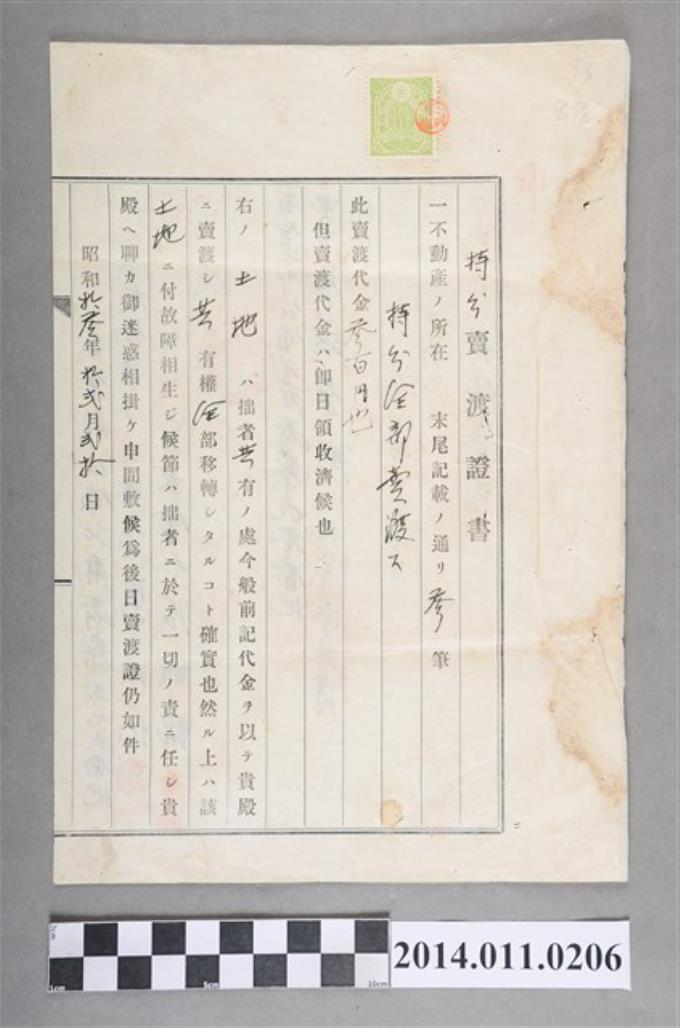 持分賣渡證書
一不動產ノ所在 末尾記載ノ通リ 參筆
持分全部賣渡ス
此賣渡代金參百円也
但賣渡代金ハ卽日領收濟候也
右ノ土地ハ拙者共有ノ處今般前記代金ヲ以テ貴殿
ニ賣渡シ共有權全部移轉シタルコト確實也然ル上ハ該
土地ニ付故障相生ジ候節ハ拙者ニ於テ一切ノ責ニ任シ貴
殿ヘ聊カ御迷惑相掛ケ申間敷候爲後日賣渡證仍如件
昭和拾參年拾弍月弍拾日
1cm 5cm 10cm
2014.011.0206